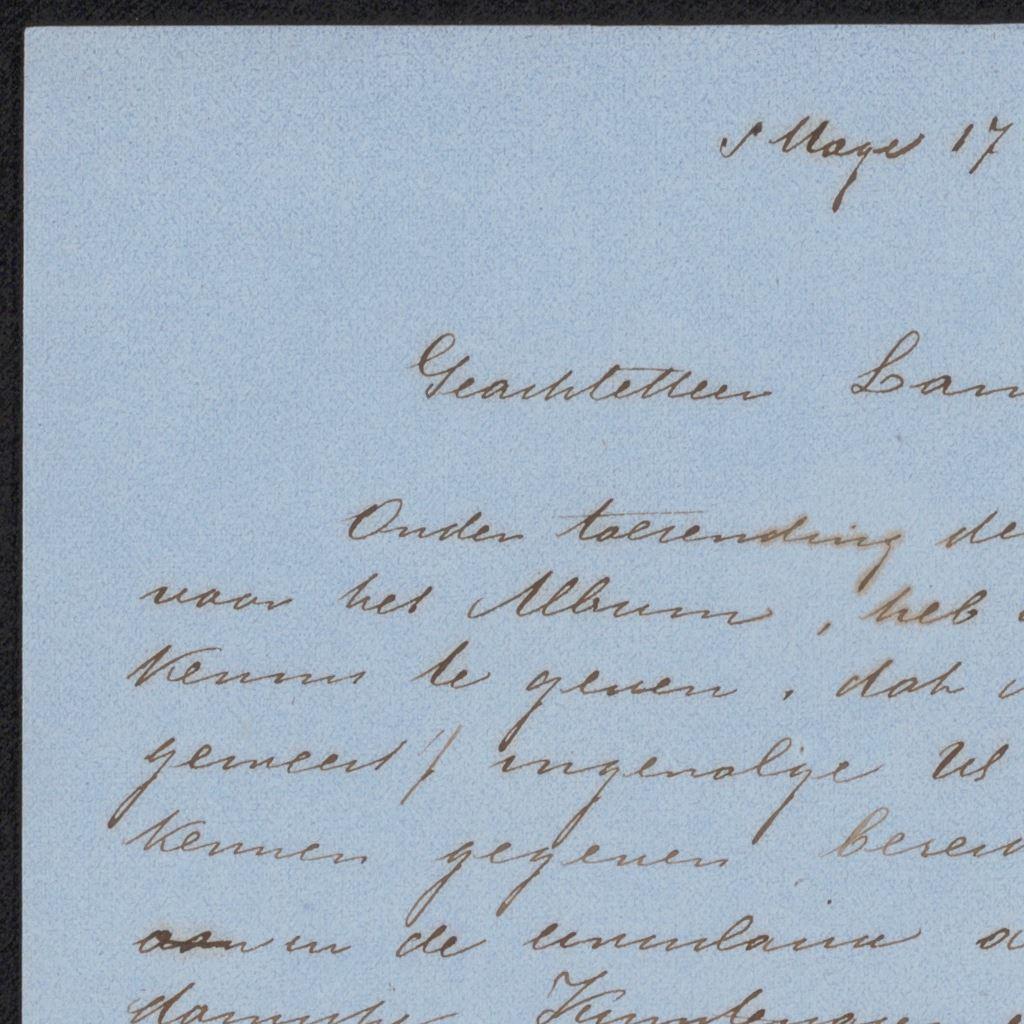 s Hage 17
Geachte Heer Lan
Onder toezending de
voor het Album, heb
kennis te geven, dat
geweest / ingevolge Ul
kennen gegeven bereid
aan in de circulaire a
damsche Kunstenaar